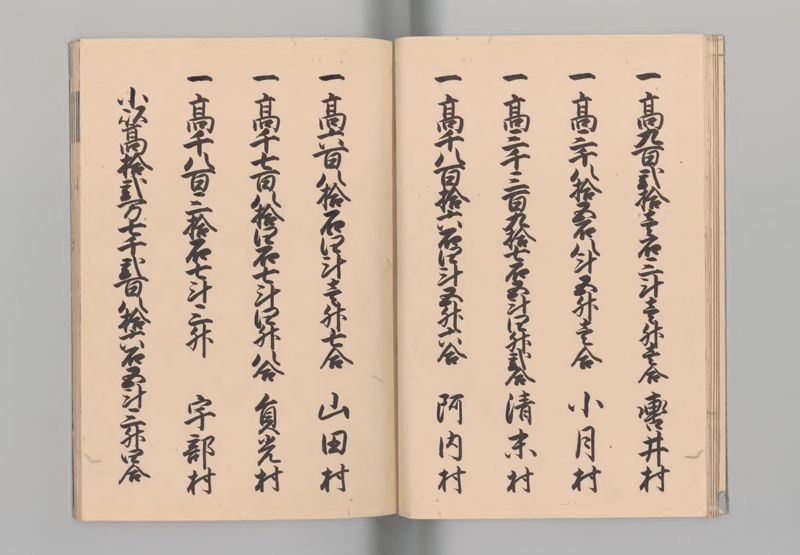 一高九百弐拾壱石三斗壱升壱合 轡井村
一高三千八拾五石八斗五升壱合 小月村
一高三千三百九拾七石五斗四升弐合 清末村
一高千八百拾六石四斗五升六合 阿内村
一高六百八拾石四斗壱升七合 山田村
一高千七百八拾四石七斗四升八合 員光村
一高千八百三拾石七斗三升 宇部村
小以高拾弐万七千弐百八拾六石五斗三升四合